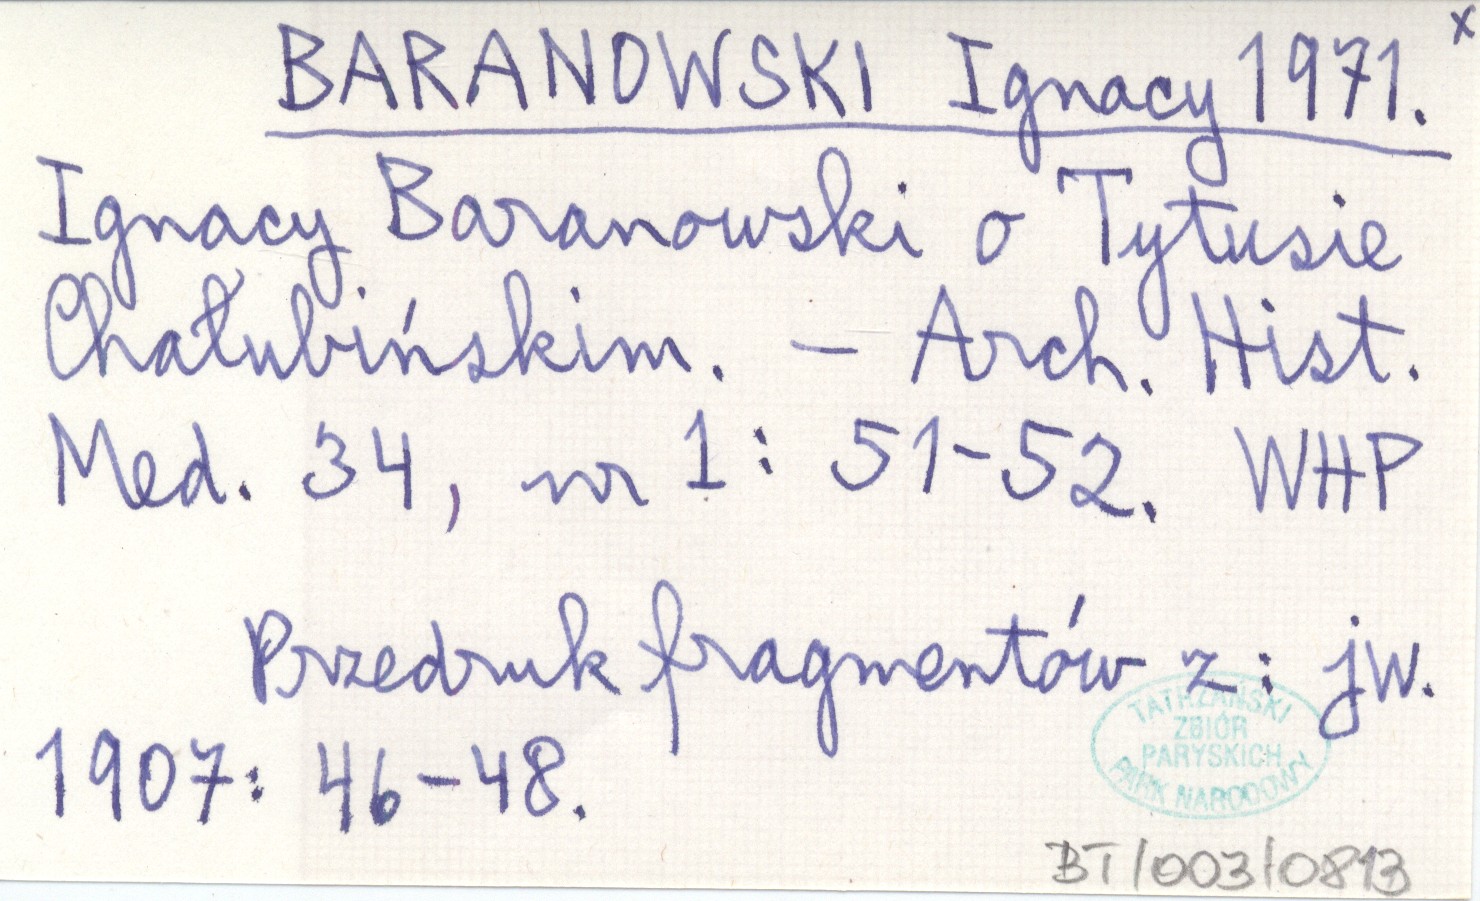 x
BARANOWSKI Ignacy 1971.
Ignacy Baranowski o Tytusie
Chałubińskim. – Arch. Hist.
Med. 34, nr 1: 51-52. WHP
Przedruk fragmentów z: jw.
1907: 46-48.
TATRZAŃSKI
ZBIÓR
PARYSKICH
PARK NARODOWY
BT/003/0813